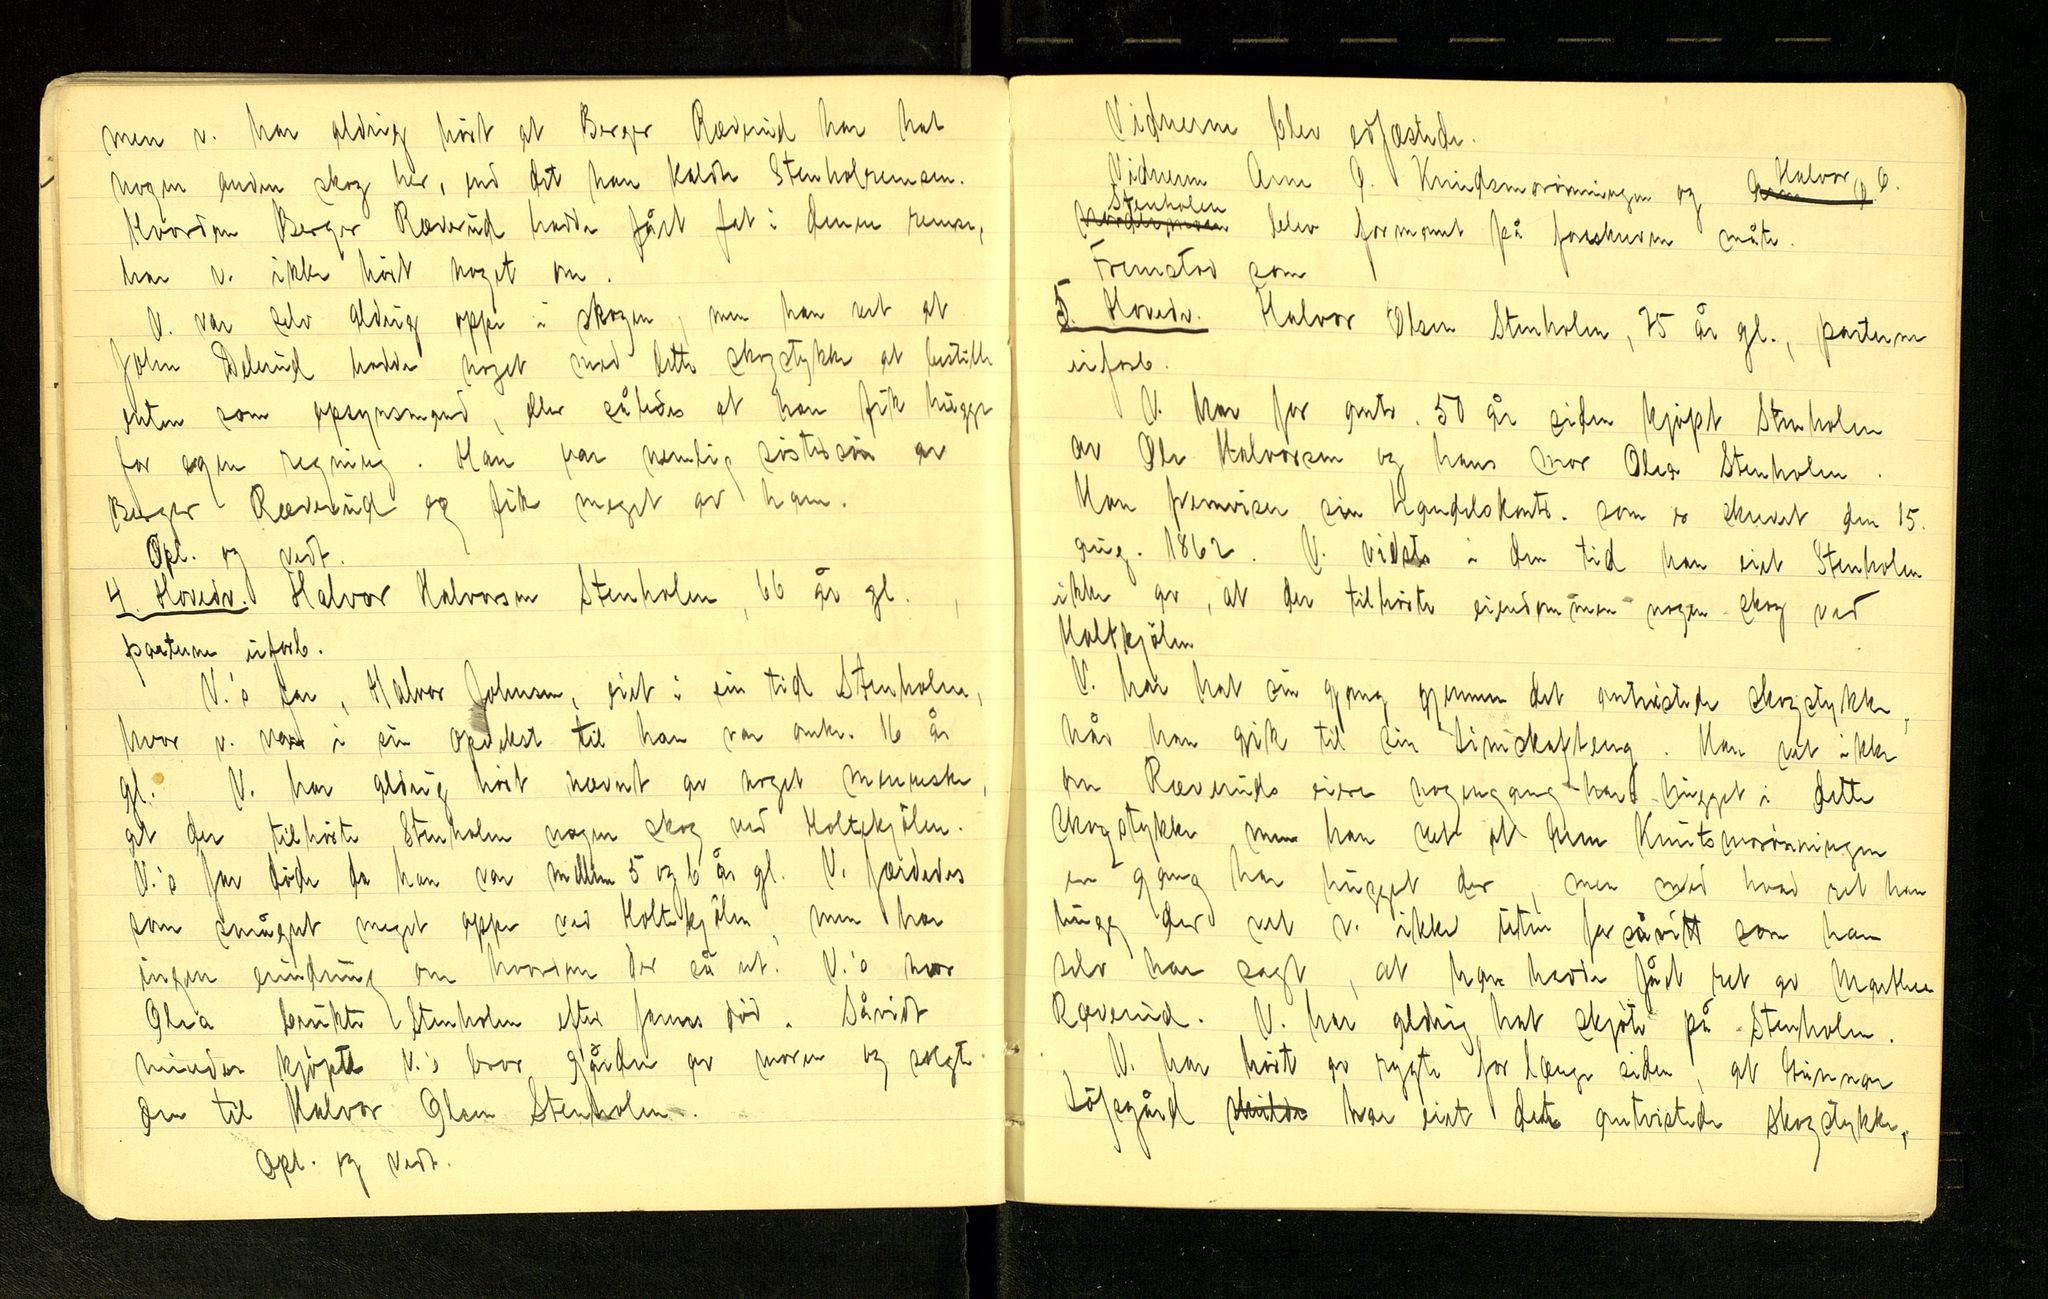 men v. har aldrig hört at Berger Ræverud har hat
nogen anden skog her, end det han kaldte Stenholremsen.
Hvordan Berger Ræverud hadde fåt fat i denne remse,
har v. ikke hört noget om.
V. var selv aldrig oppe i skogen, men han vet at
John Delerud hadde noget med dette skogstykke at bestille
enten som opsynsmand, eller således at han fik hugge
for egen regning. Han var nemlig sösterson av
Berger Ræverud og fik meget av ham.
Opl. og vedt.
4. Hovedv. Halvor Halvorsen Stenholen, 66 år gl.,
parterne uforb.
V.'s far, Halvor Johnsen, eiet i sin tid Stenholen,
hvor v. var i sin opvekst til han var omkr. 16 år
gl. V. har aldrig hört nævnt av noget menneske,
at der tilhörte Stenholen nogen skog ved Holtekjölen.
V.'s far döde da han var mellem 5 og 6 år gl. V. færdedes
som smågut meget oppe ved Holtekjölen, men har
ingen erindring om hvordan der så ut. V.'s mor
Olea brukte Stenholen efter farens död. Såvidt
mindes kjöpte V.'s bror gården av moren og solgte
den til Halvor Olsen Stenholen.
Opl. og vedt.
Vidnerne blev edfæstede.
Vidnerne Arne O. Knudsmorönningen og Halvor O.
Stenholen blev formant på foreskreven måte.
Fremstod som
5. Hovedv. Halvor Olsen Stenholen, 75 år gl., parterne
uforb.
V. har for omtr. 50 år siden kjöpt Stenholen
av Ole Halvorsen og hans mor Olea Stenholen.
Han fremviser sin handelskontr. som er skrevet den 15.
aug. 1862. V. vidste i den tid han eiet Stenholen
ikke av, at der tilhörte eiendommen nogen skog ved
Holtkjölen
V. har hat sin gang gjennem det omtvistede skogstykke,
når han gik til sin Limskafteng. Han vet ikke
om Ræveruds eiere nogengang har hugget i dette
skogstykke men han vet at Arne Knutsmorönningen
en gang har hugget der, men med hvad ret han
hugg der vet v. ikke uten forsåvitt som han
selv har sagt, at han hadde fåt ret av Marthea
Ræverud. V. har aldrig hat skjöte på Stenholen.
V. har hört av rygte for længe siden, at Gunnar
Löfsgård skulde har eiet dette omtvistede skogstykke,